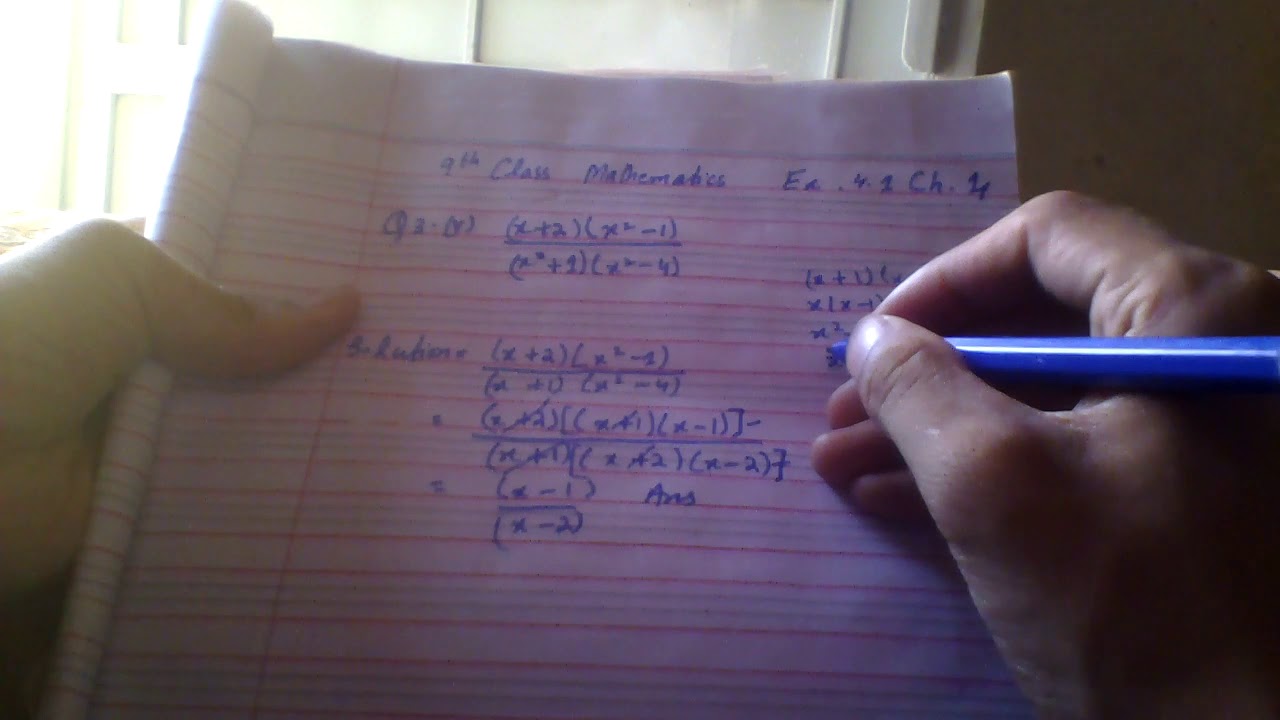 9th Class Mathematics Ex. 4.1 Ch. 4
Q3.(v) (x+2)(x²-1)
(x²+1)(x²-4)
(x+1)(x
x(x-1)
x²-
Solution= (x+2)(x²-1)
(x +1) (x²-4)
= (x+2)[(x+1)(x-1)]-
(x+1)[(x+2)(x-2)]
= (x-1) Ans
(x-2)